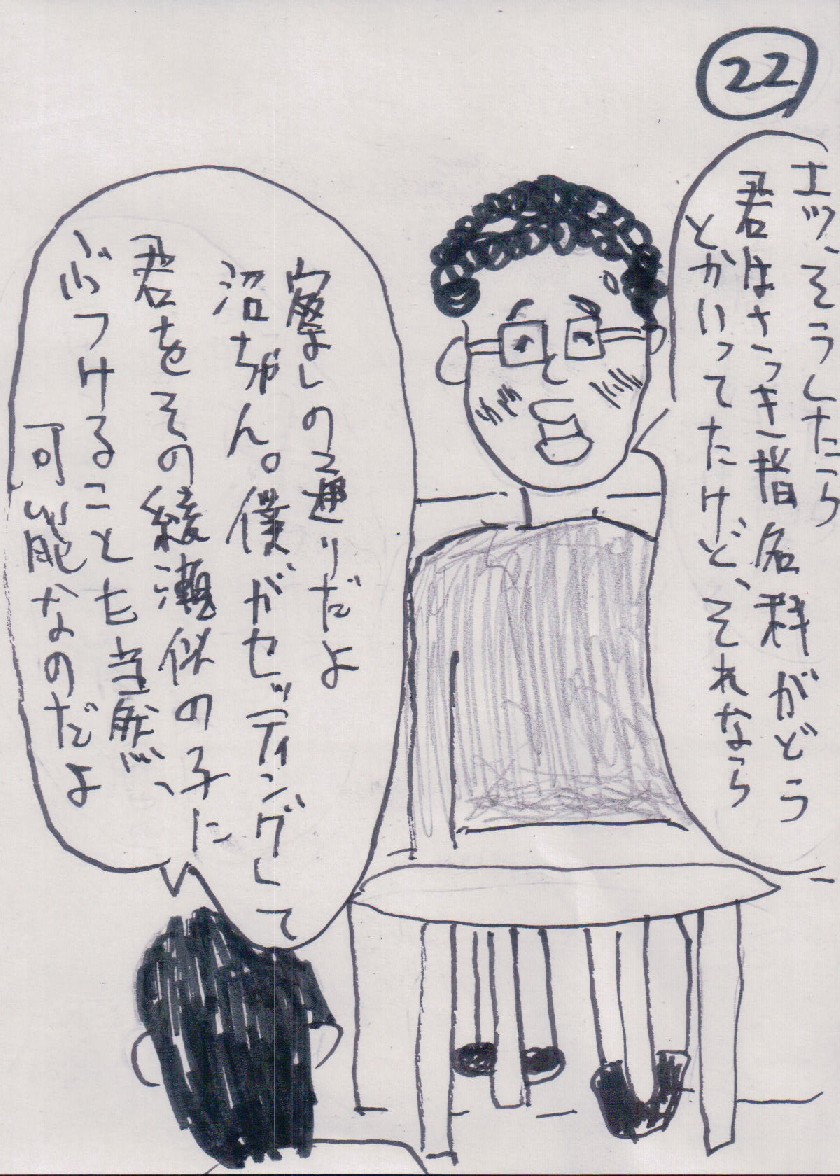 22
エッ、そうしたら
君はさっき指名料がどう
とかいってたけど、それなら
察しの通りだよ
沼ちゃん。僕がセッティングして
君をその綾瀬似の子に
ぶつけることも当然、
可能なのだよ